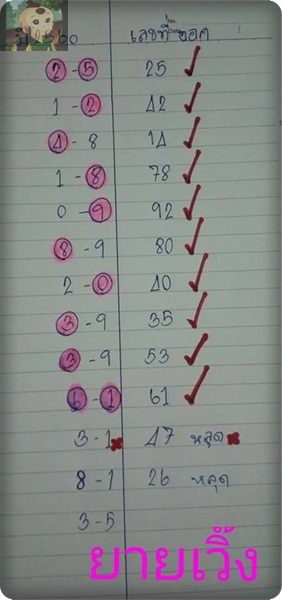 เลขที่ ออก
2-5 25
1-2 42
4-8 14
1-8 78
0-9 92
8-9 80
2-0 40
3-9 35
3-9 53
6-1 61
3-1 47 หลุด
8-1 26 หลุด
3-5
ยายเวิ้ง